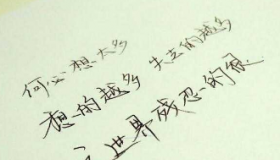 何必想太多
想的越多 失去的越多
世界残忍的很